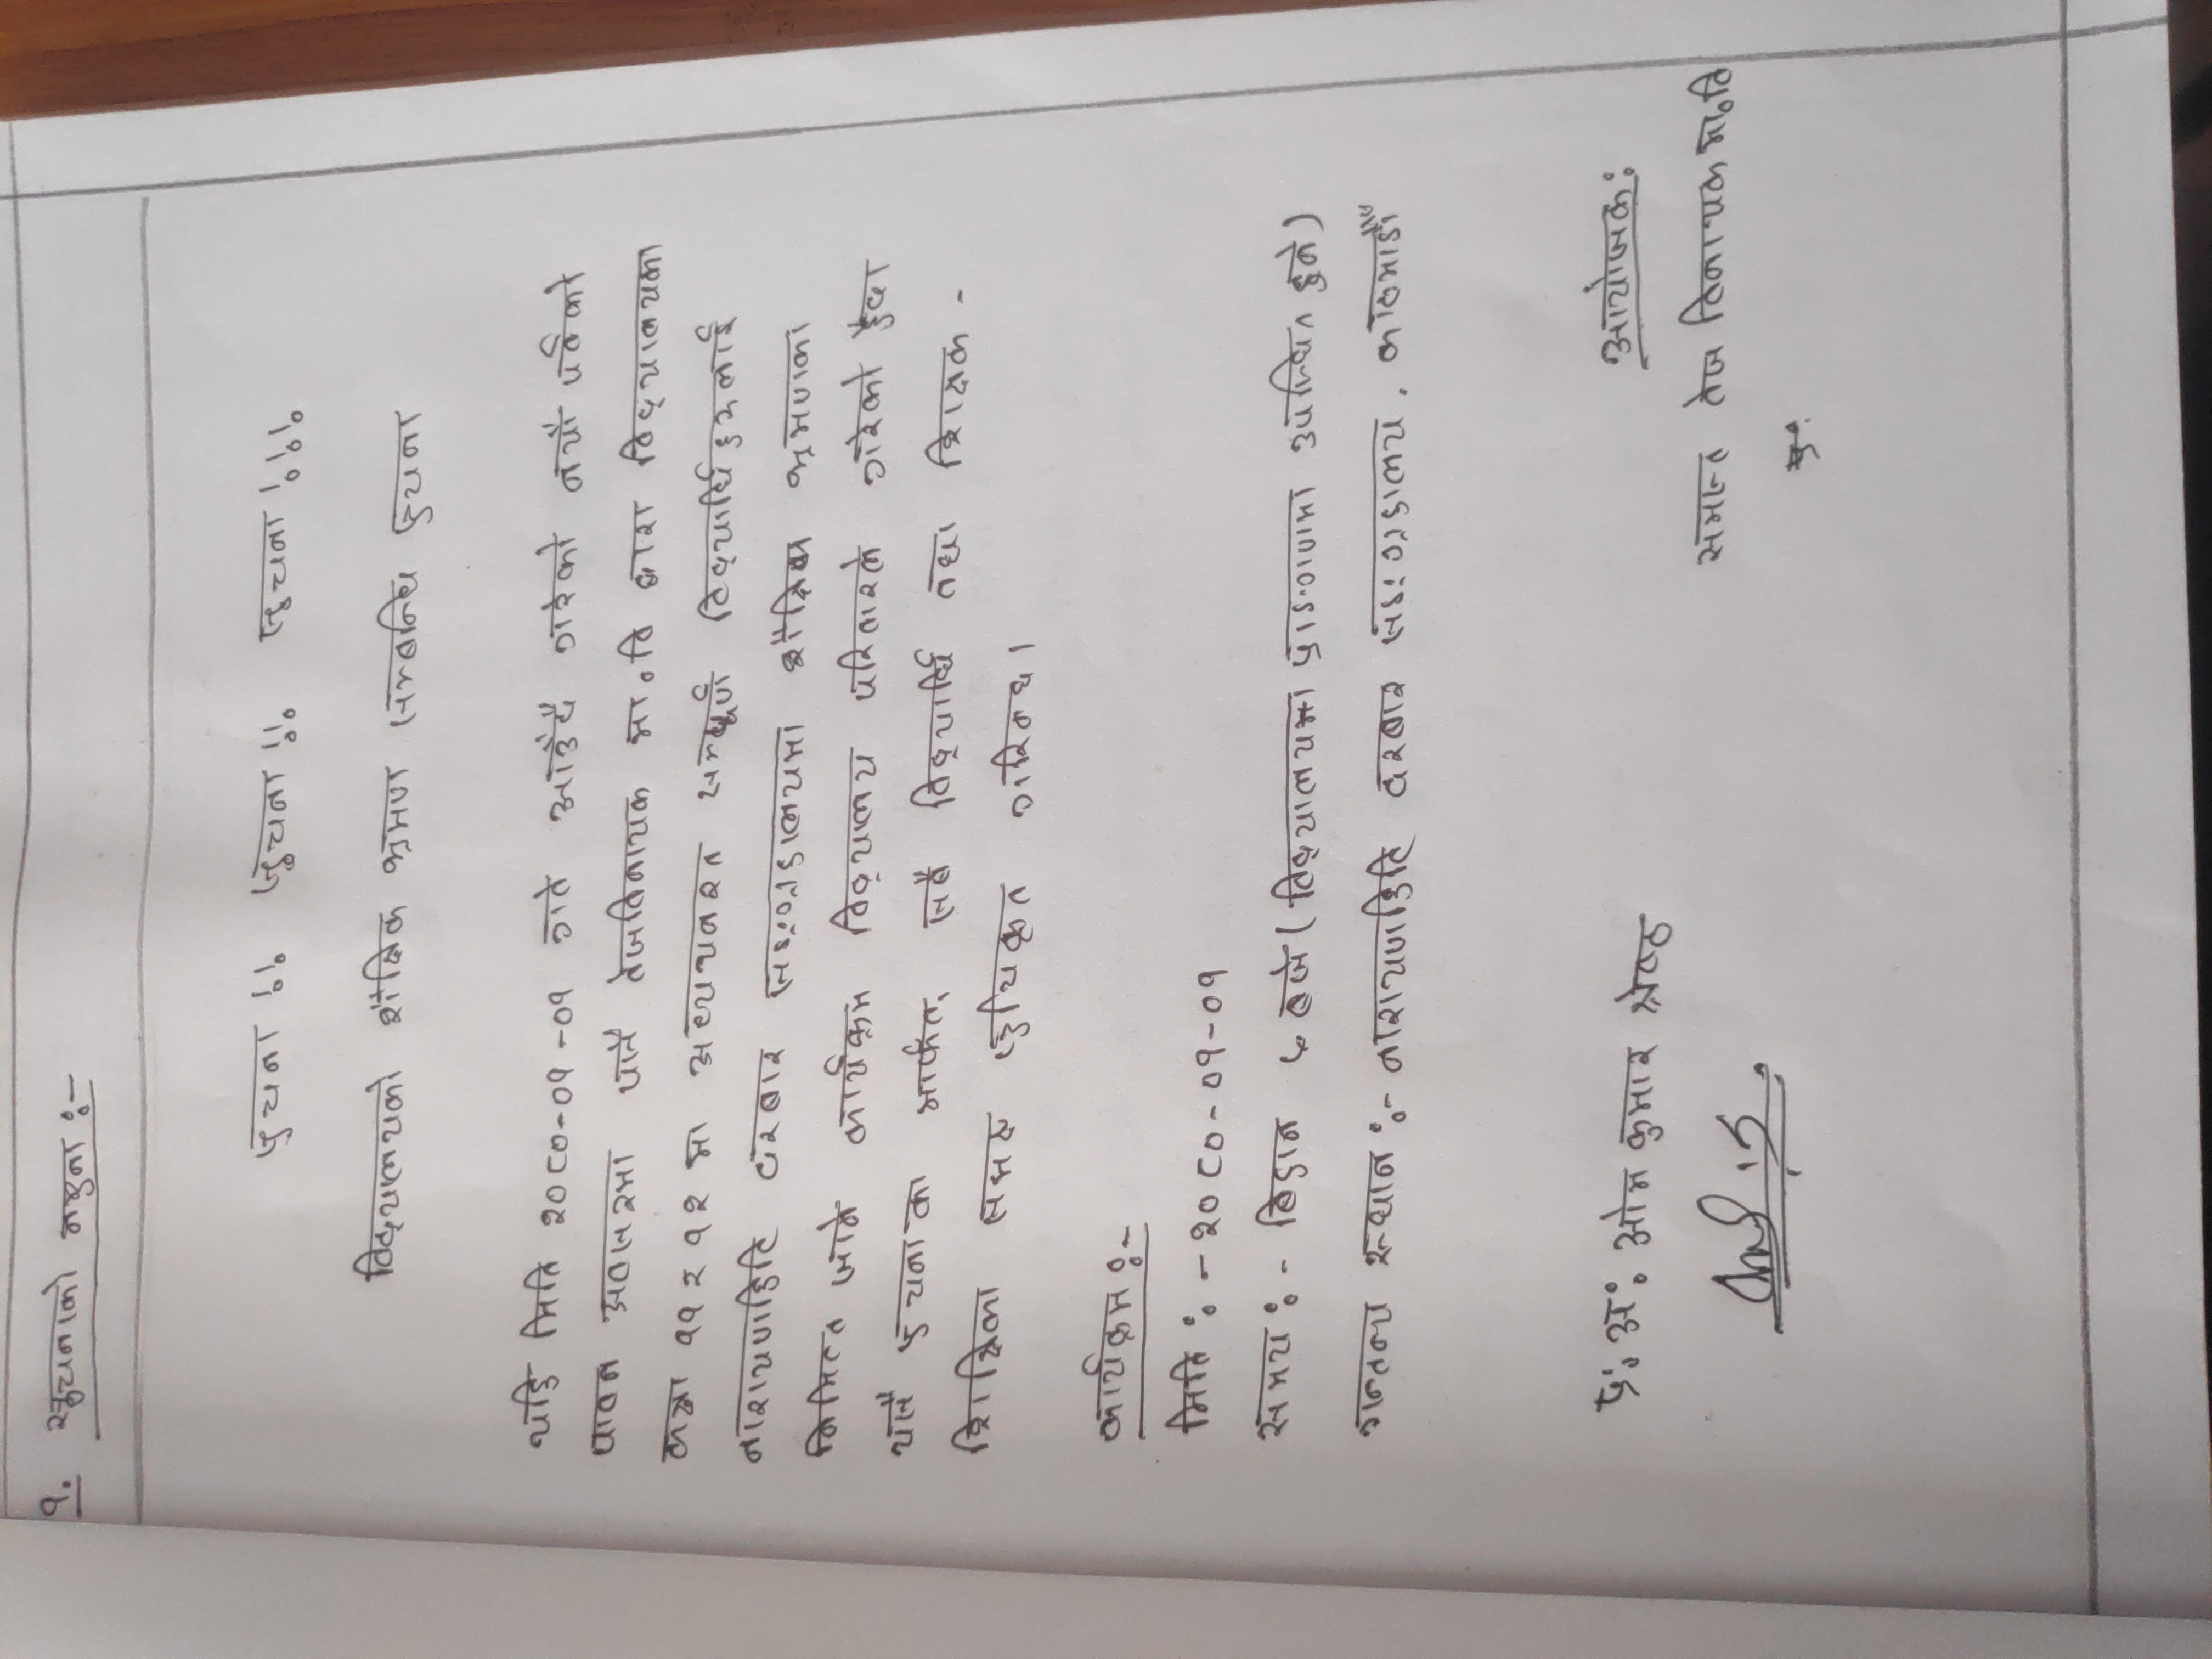 १. सुचनाको नमुना :-
सुचना !! सुचना !! सुचना !!!
विद्यालयको शैक्षिक भ्रमण सम्बन्धि सुचना
यहि मिति २०८०-०१-०१ गते आउँदै गरेको नयाँ पर्वको
पावन अवसरमा यसै तेजविनायक मा.वि द्वारा विद्यालयका
कक्षा ११ र १२ मा अध्ययनरत सम्पूर्ण विद्यार्थिहरुलाई
नारायणहिटि दरबार सङ्ग्रहालयमा शैक्षिक भ्रमणका
निमित्त जाने कार्यक्रम विद्यालय परिवारले गरेको हुँदा
यसै सुचनाका मार्फत, सबै विद्यार्थि तथा शिक्षक -
शिक्षिका समक्ष सुचिकृत गरिन्छ।
कार्यक्रम :-
मिति : - २०८०-०१-०१
समय : - बिहान ६ बजे ( विद्यालयमा प्राङ्गणमा उपस्थित हुने )
गन्तव्य स्थान :- नारायणहिटि दरबार सङ्ग्रहालय, काठमाडौँ
प्र: अ: ओम कुमार श्रेष्ठ
आयोजक:
समान्त तेज विनायक मा.वि